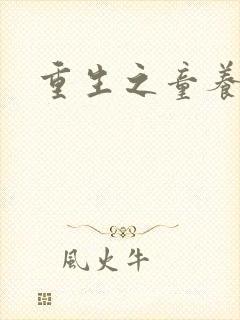 重生之童養
風火牛